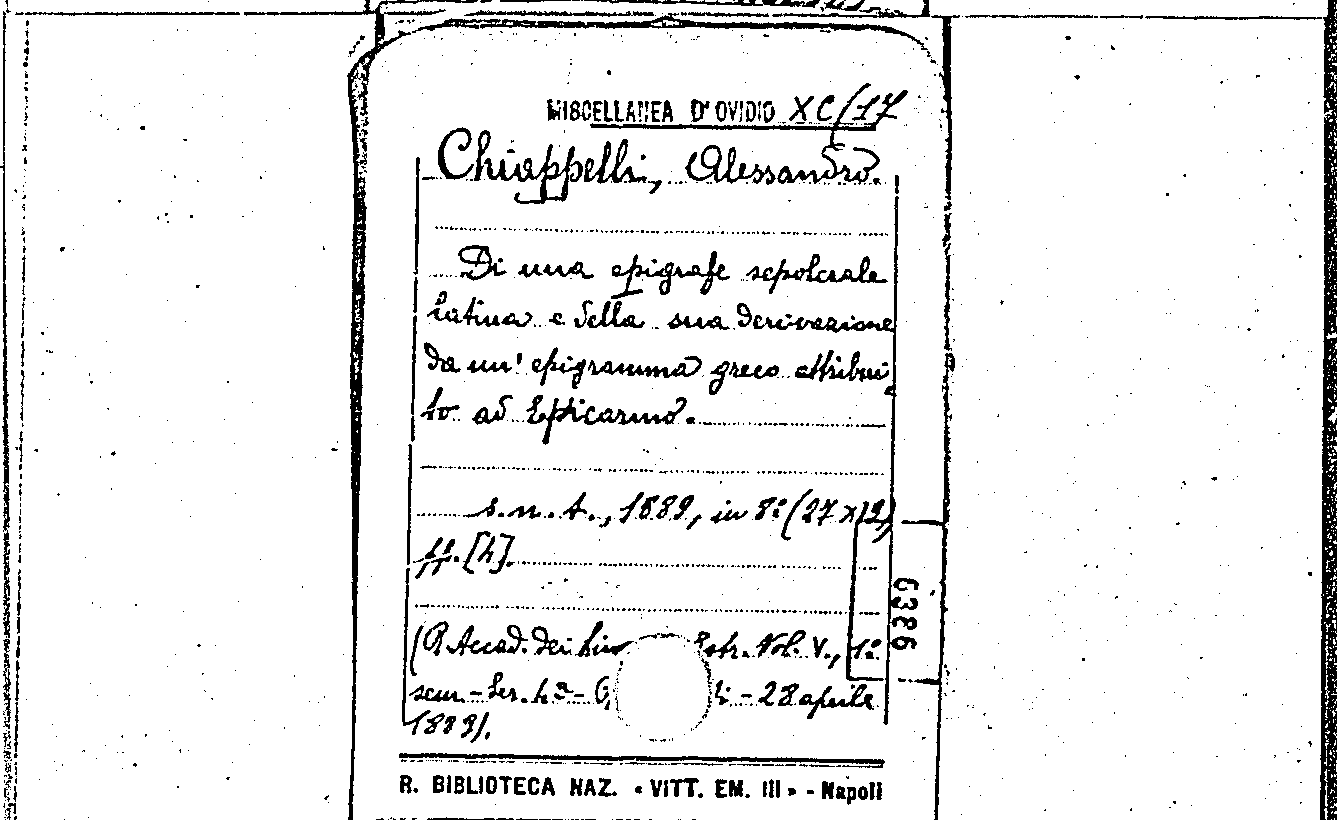 MISCELLANEA D'OVIDIO XC/17
Chiappelli, Alessandro.
Di una epigrafe sepolcrale
latina e della sua derivazione
da un' epigramma greco attribui
to ad Epicarmo.
s. n. t., 1889, in 8º (27 x 19)
ff. [4].
(R. Accad. dei Lin Estr. Vol. V., 1º
sem. - Ser. 4ª - - 28 aprile
1889).
6386
R. BIBLIOTECA NAZ. « VITT. EM. III » - Napoli